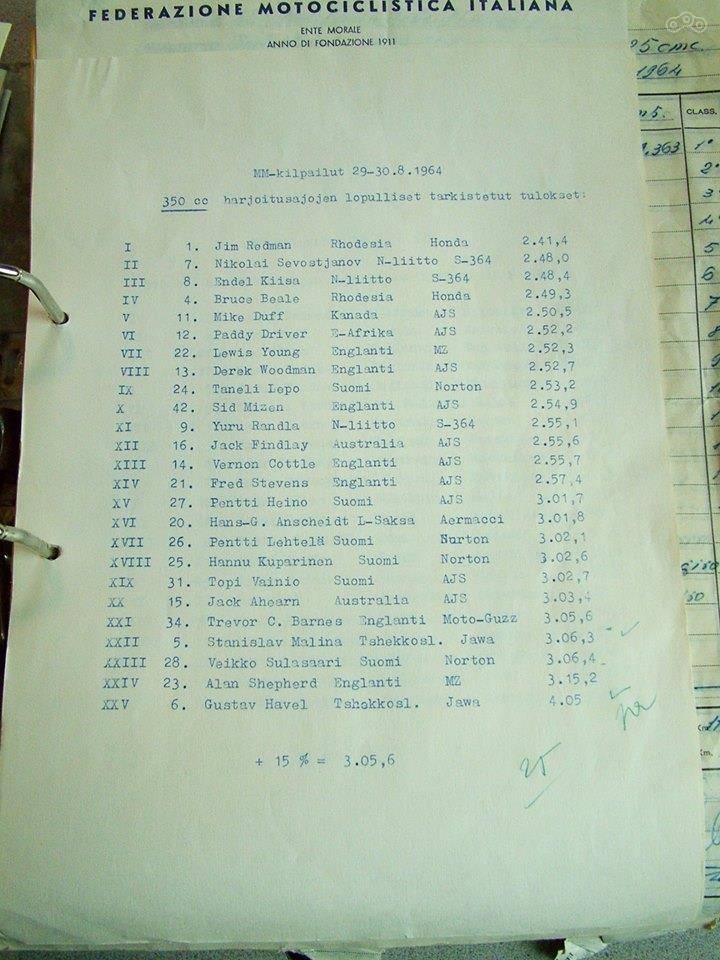 FEDERAZIONE MOTOCICLISTICA ITALIANA
ENTE MORALE
ANNO DI FONDAZIONE 1911
MM-kilpailut 29-30.8.1964
350 cc harjoitusajojen lopulliset tarkistetut tulokset:
I 1. Jim Redman Rhodesia Honda 2.41,4
II 7. Nikolai Sevostjanov N-liitto S-364 2.48,0
III 8. Endel Kiisa N-liitto S-364 2.48,4
IV 4. Bruce Beale Rhodesia Honda 2.49,3
V 11. Mike Duff Kanada AJS 2.50,5
VI 12. Paddy Driver E-Afrika AJS 2.52,2
VII 22. Lewis Young Englanti MZ 2.52,3
VIII 13. Derek Woodman Englanti AJS 2.52,7
IX 24. Taneli Lepo Suomi Norton 2.53,2
X 42. Sid Mizen Englanti AJS 2.54,9
XI 9. Yuru Randla N-liitto S-364 2.55,1
XII 16. Jack Findlay Australia AJS 2.55,6
XIII 14. Vernon Cottle Englanti AJS 2.55,7
XIV 21. Fred Stevens Englanti AJS 2.57,4
XV 27. Pentti Heino Suomi AJS 3.01,7
XVI 20. Hans-G. Anscheidt L-Saksa Aermacci 3.01,8
XVII 26. Pentti Lehtelä Suomi Nurton 3.02,1
XVIII 25. Hannu Kuparinen Suomi Norton 3.02,6
XIX 31. Topi Vainio Suomi AJS 3.02,7
XX 15. Jack Ahearn Australia AJS 3.03,4
XXI 34. Trevor C. Barnes Englanti Moto-Guzz 3.05,6
XXII 5. Stanislav Malina Tshekkosl. Jawa 3.06,3
XXIII 28. Veikko Sulasaari Suomi Norton 3.06,4
XXIV 23. Alan Shepherd Englanti MZ 3.15,2
XXV 6. Gustav Havel Tshekkosl. Jawa 4.05
+ 15 % = 3.05,6
25
5 cmc.
1964
CLASS.
1.363 1°
2°
3
4
5
6
7